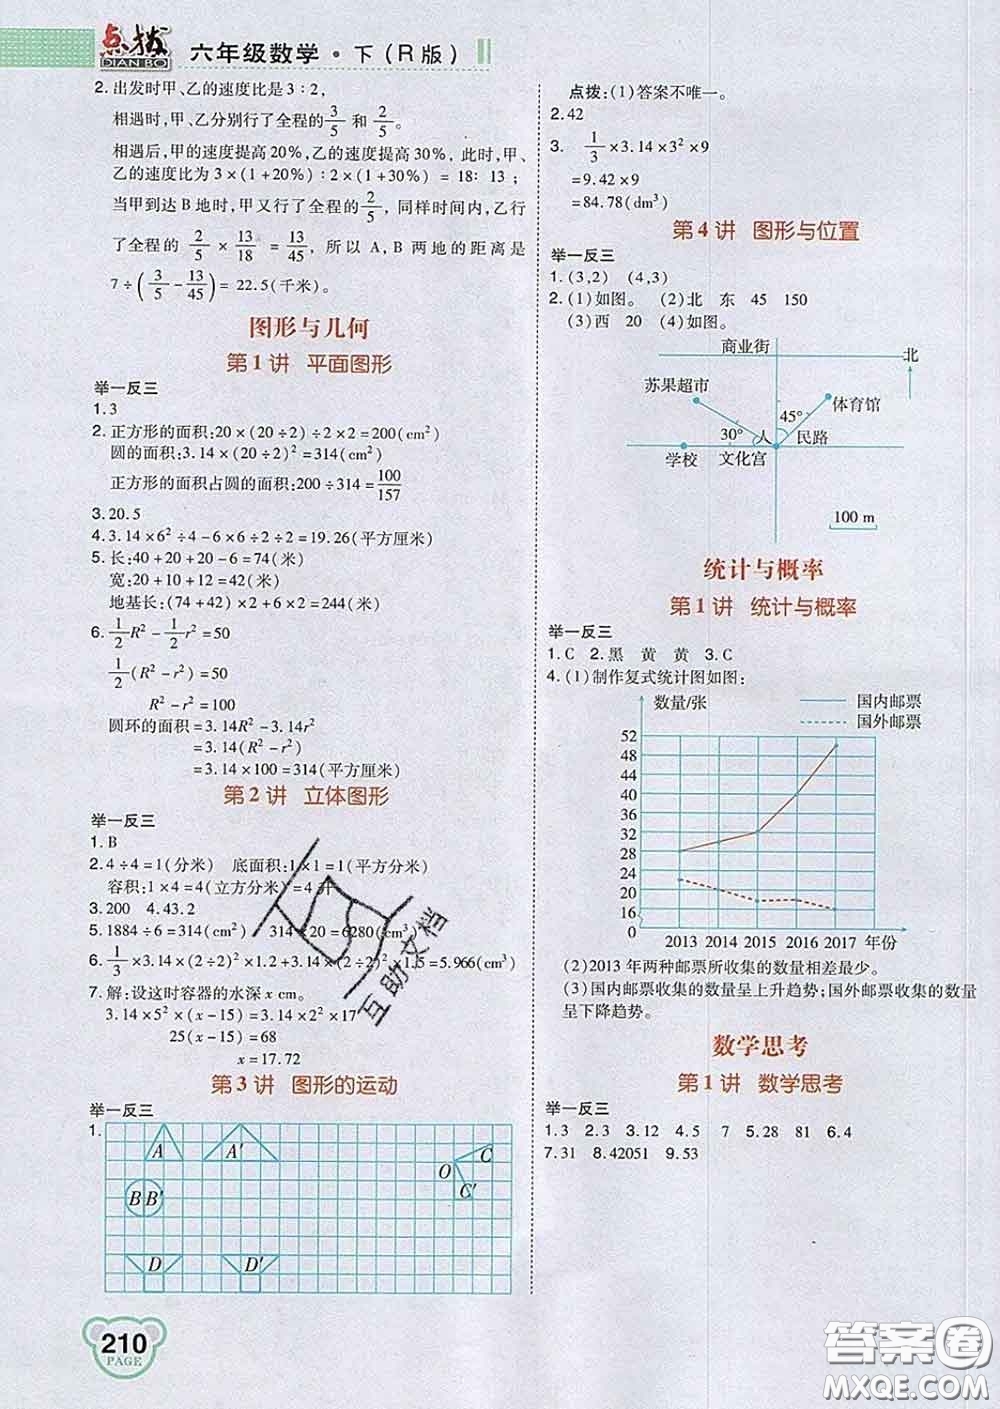 点拨
DIAN BO
六年级数学·下(R版)
2.出发时甲、乙的速度比是3∶2,
相遇时,甲、乙分别行了全程的3/5 和 2/5。
相遇后,甲的速度提高20%,乙的速度提高30%, 此时,甲、
乙的速度比为 3×(1+20%)∶2×(1+30%) = 18∶13 ;
当甲到达B地时,甲又行了全程的2/5, 同样时间内,乙行
了全程的 2/5 × 13/18 = 13/45, 所以A,B两地的距离是
7÷(3/5-13/45) = 22.5(千米)。
图形与几何
第1讲 平面图形
举一反三
1.3
2.正方形的面积:20×(20÷2)÷2×2=200(cm²)
圆的面积:3.14×(20÷2)²=314(cm²)
正方形的面积占圆的面积:200÷314=100/157
3.20.5
4.3.14×6²÷4-6×6÷2÷2=19.26(平方厘米)
5.长:40+20+20-6=74(米)
宽:20+10+12=42(米)
地基长:(74+42)×2+6×2=244(米)
6.1/2R²-1/2r²=50
1/2(R²-r²)=50
R²-r²=100
圆环的面积=3.14R²-3.14r²
=3.14(R²-r²)
=3.14×100=314(平方厘米)
第2讲 立体图形
举一反三
1.B
2.4÷4=1(分米) 底面积:1×1=1(平方分米)
容积:1×4=4(立方分米)=4升
3.200 4.43.2
5.1884÷6=314(cm²) 314×20=6280(cm³)
6.1/3×3.14×(2÷2)²×1.2+3.14×(2÷2)²×1.5=5.966(cm³)
7.解:设这时容器的水深x cm。
3.14×5²×(x-15)=3.14×2×2×17
25(x-15)=68
x=17.72
第3讲 图形的运动
举一反三
1.
A A′ C
O
C′
B B′
D D′
210
PAGE
点拨:(1)答案不唯一。
2.42
3. 1/3×3.14×3²×9
=9.42×9
=84.78(dm³)
第4讲 图形与位置
举一反三
1.(3,2) (4,3)
2.(1)如图。 (2)北 东 45 150
(3)西 20 (4)如图。
商业街
北
苏果超市
体育馆
45°
30°
人 民路
学校 文化宫
100 m
统计与概率
第1讲 统计与概率
举一反三
1.C 2.黑 黄 黄 3.C
4.(1)制作复式统计图如图:
数量/张
国内邮票
国外邮票
52
48
44
40
36
32
28
24
20
16
0
2013 2014 2015 2016 2017 年份
(2)2013年两种邮票所收集的数量相差最少。
(3)国内邮票收集的数量呈上升趋势;国外邮票收集的数量
呈下降趋势。
数学思考
第1讲 数学思考
举一反三
1.3 2.3 3.12 4.5 7 5.28 81 6.4
7.31 8.42051 9.53
互助文档
答案圈
MXQE.COM